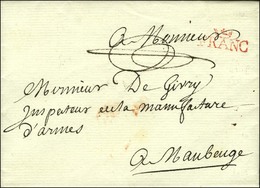 A Monsieur
FRANC
Monsieur De Givry
Inspecteur en la manufacture
d'armes
A Maubeuge